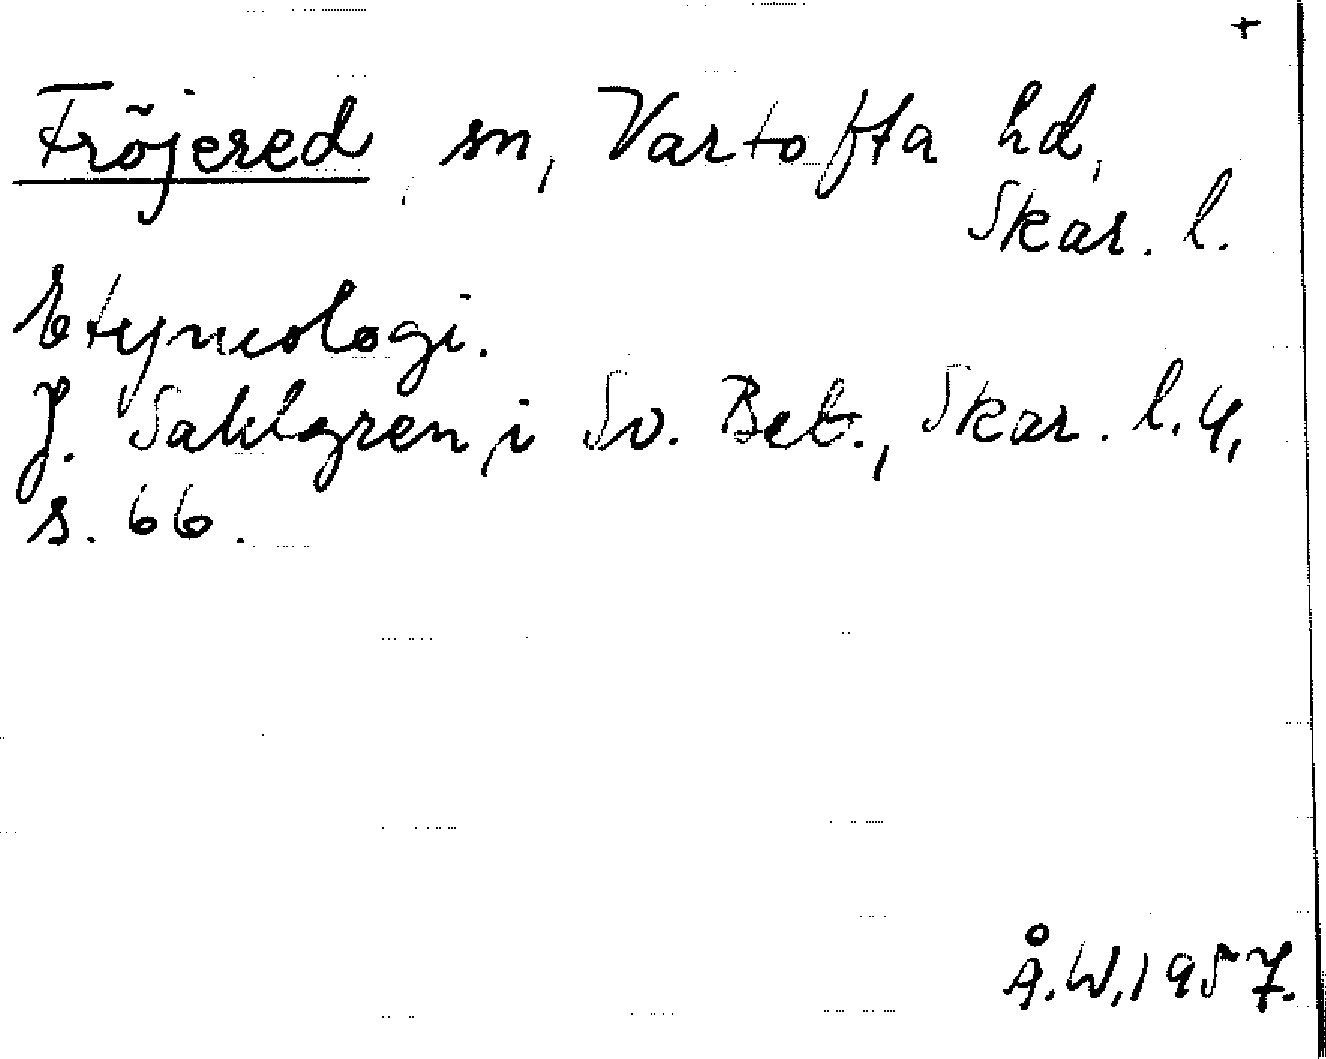 +
Fröjered, sn, Vartofta hd,
Skar. l.
Etymologi.
J. Sahlgren, i Sv. Bet., Skar. l. 4,
s. 66.
Å.W. 1957.